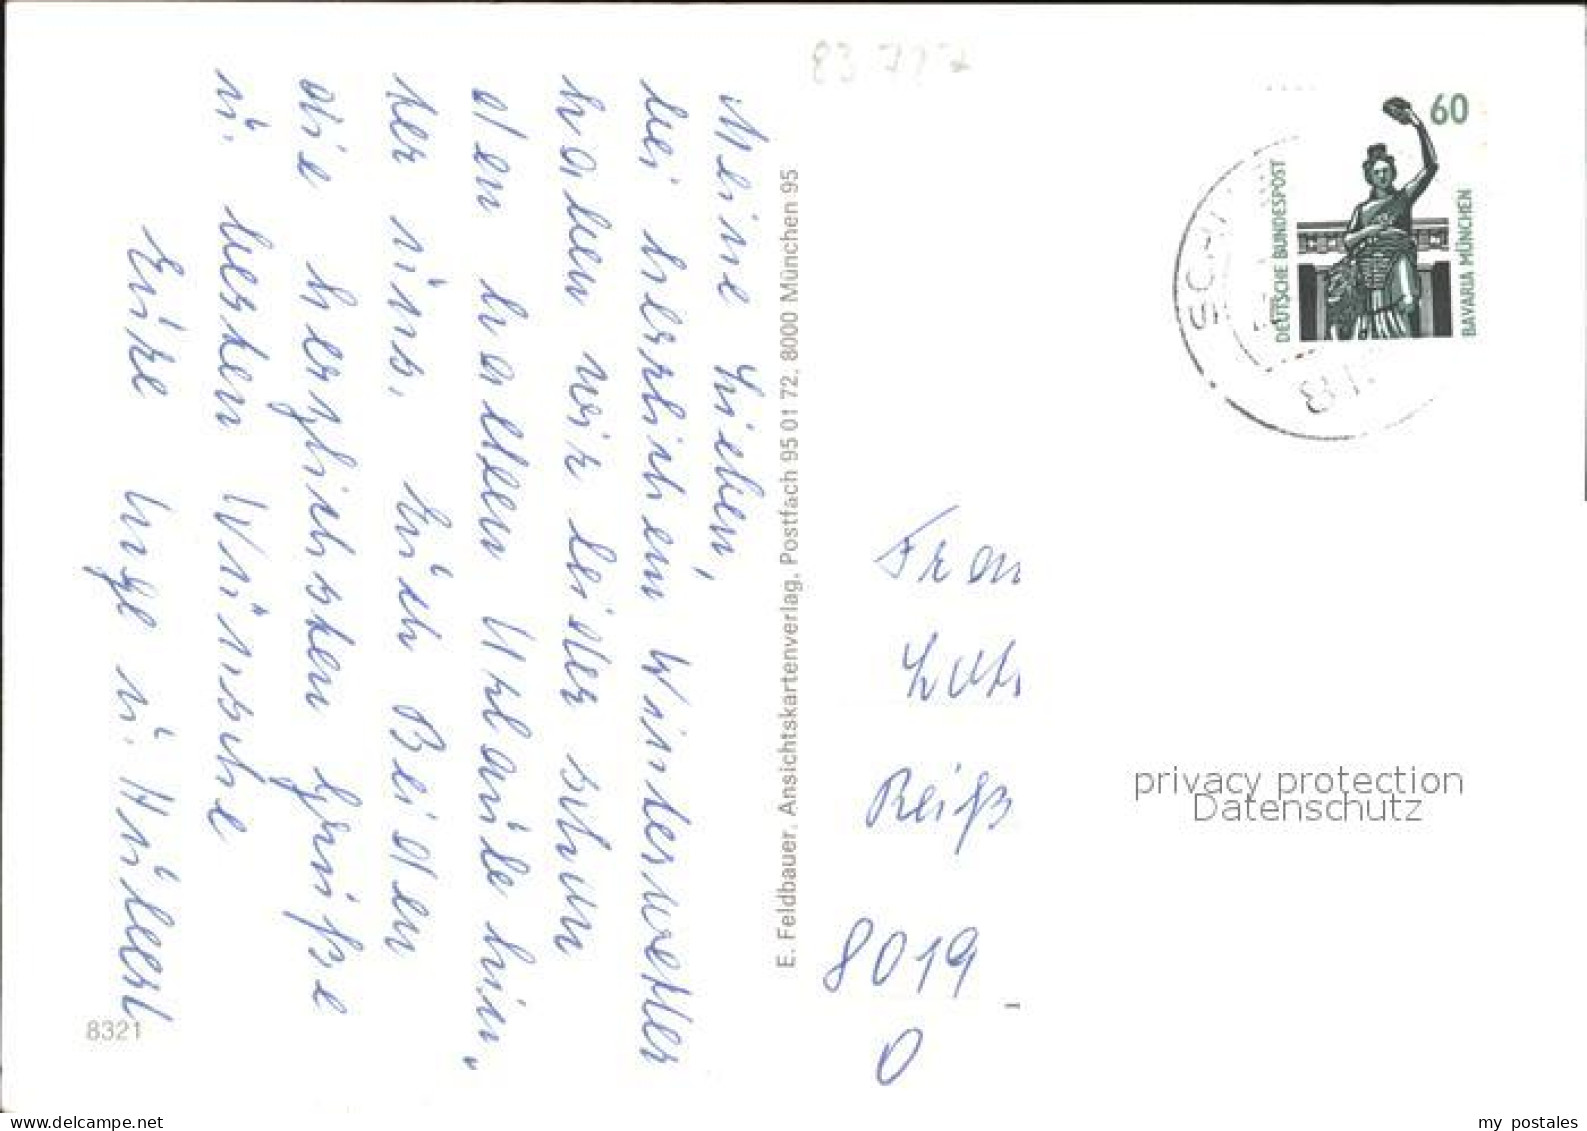 83 777
Meine Lieben,
bei herrlichem Winterwetter
haben wir leider schon
den halben Urlaub hin"
ter uns. Euch Beiden
die herzlichsten Grüße
u. besten Wünsche
Eure Inge u. Hubert
8321
E. Feldbauer, Ansichtskartenverlag, Postfach 95 01 72, 8000 München 95
60
DEUTSCHE BUNDESPOST
BAVARIA MÜNCHEN
Frau
Reiß
8019
privacy protection
Datenschutz
my postales